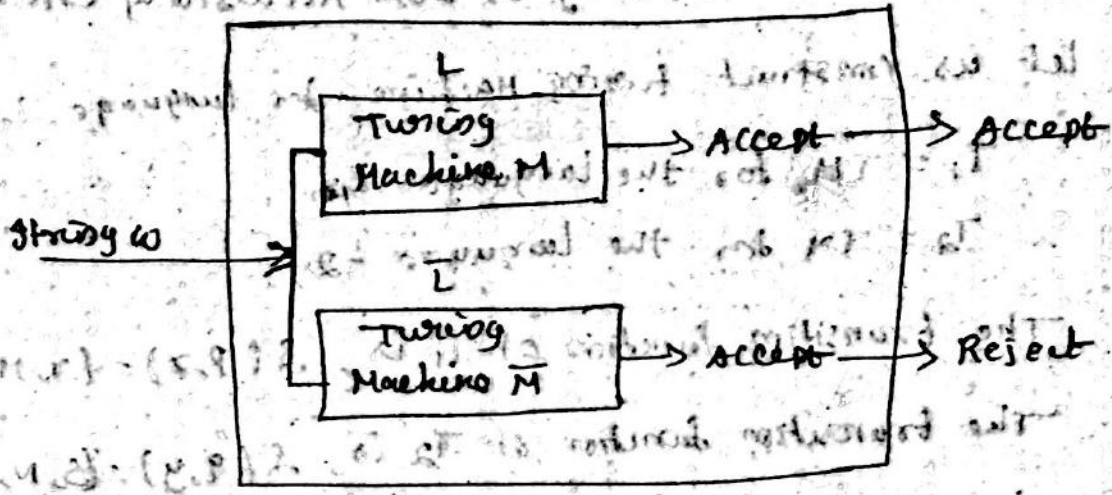 L
Turing
Machine M
Accept
Accept
String w
L̅
Turing
Machine M̅
Accept
Reject